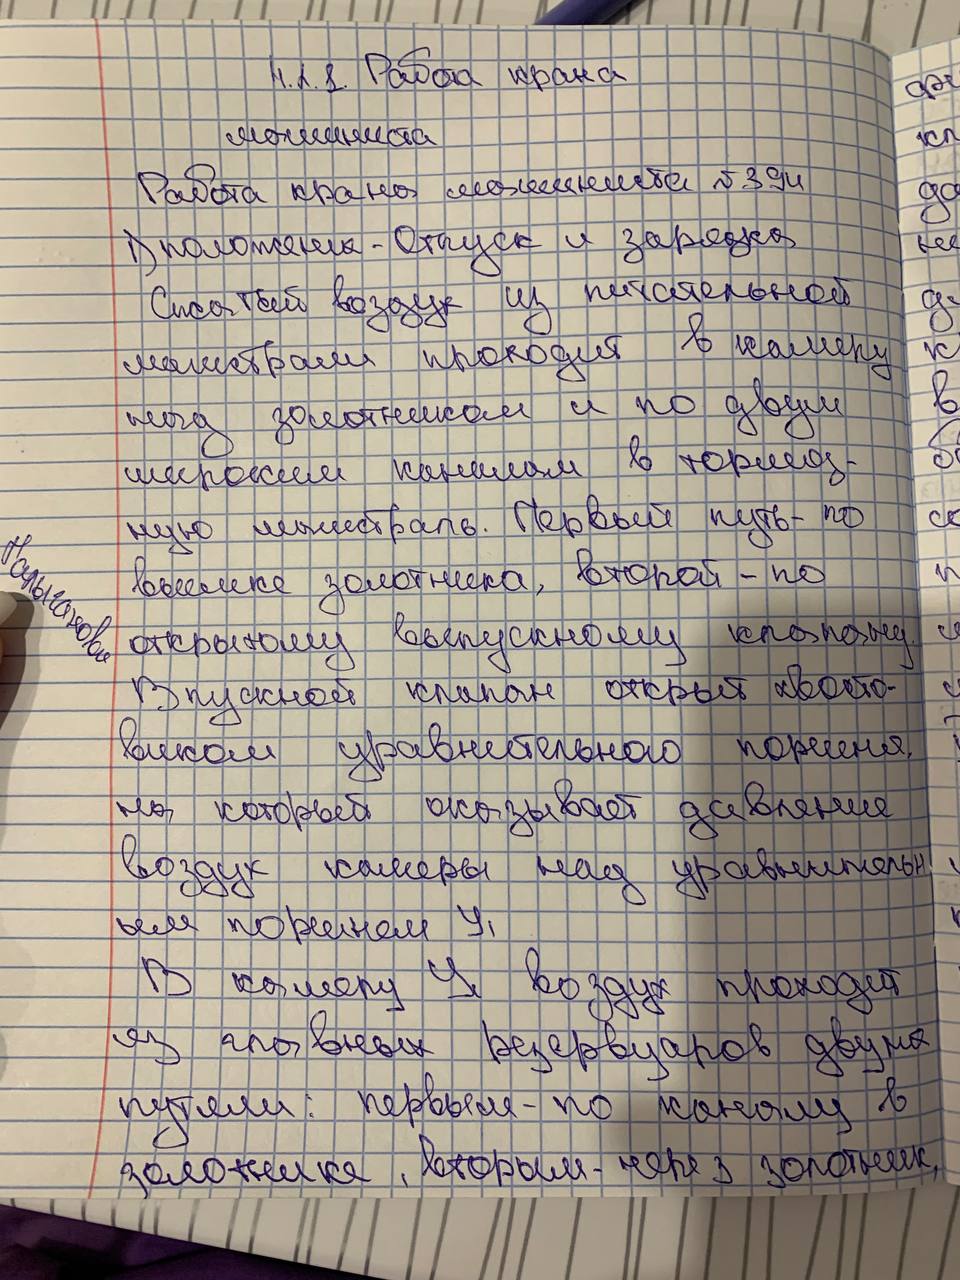 4.2.1. Работа крана
машиниста
Работа крана машиниста №394
1) положение - Отпуск и зарядка
Сжатый воздух из питательной
магистрали проходит в камеру
над золотником и по двум
широким каналам в тормоз-
ную магистраль. Первый путь - по
выемке золотника, второй - по
открытому выпускному клапану.
Впускной клапан открыт хвосто-
виком уравнительного поршня,
на который оказывает давление
воздух камеры над уравнительн
ым поршнем У1
В камеру У1 воздух проходит
из главных резервуаров двумя
путями: первым - по каналу в
золотнике, вторым - через золотник,
ну
до
не
к
в